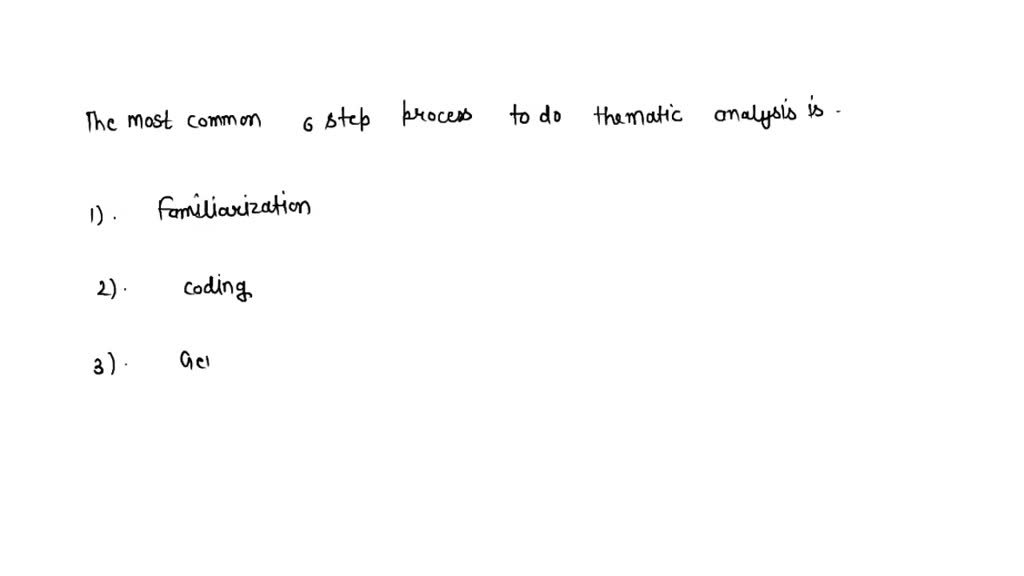 The most common 6 step process to do thematic analysis is.
1). Familiarization
2). coding
3). Ge